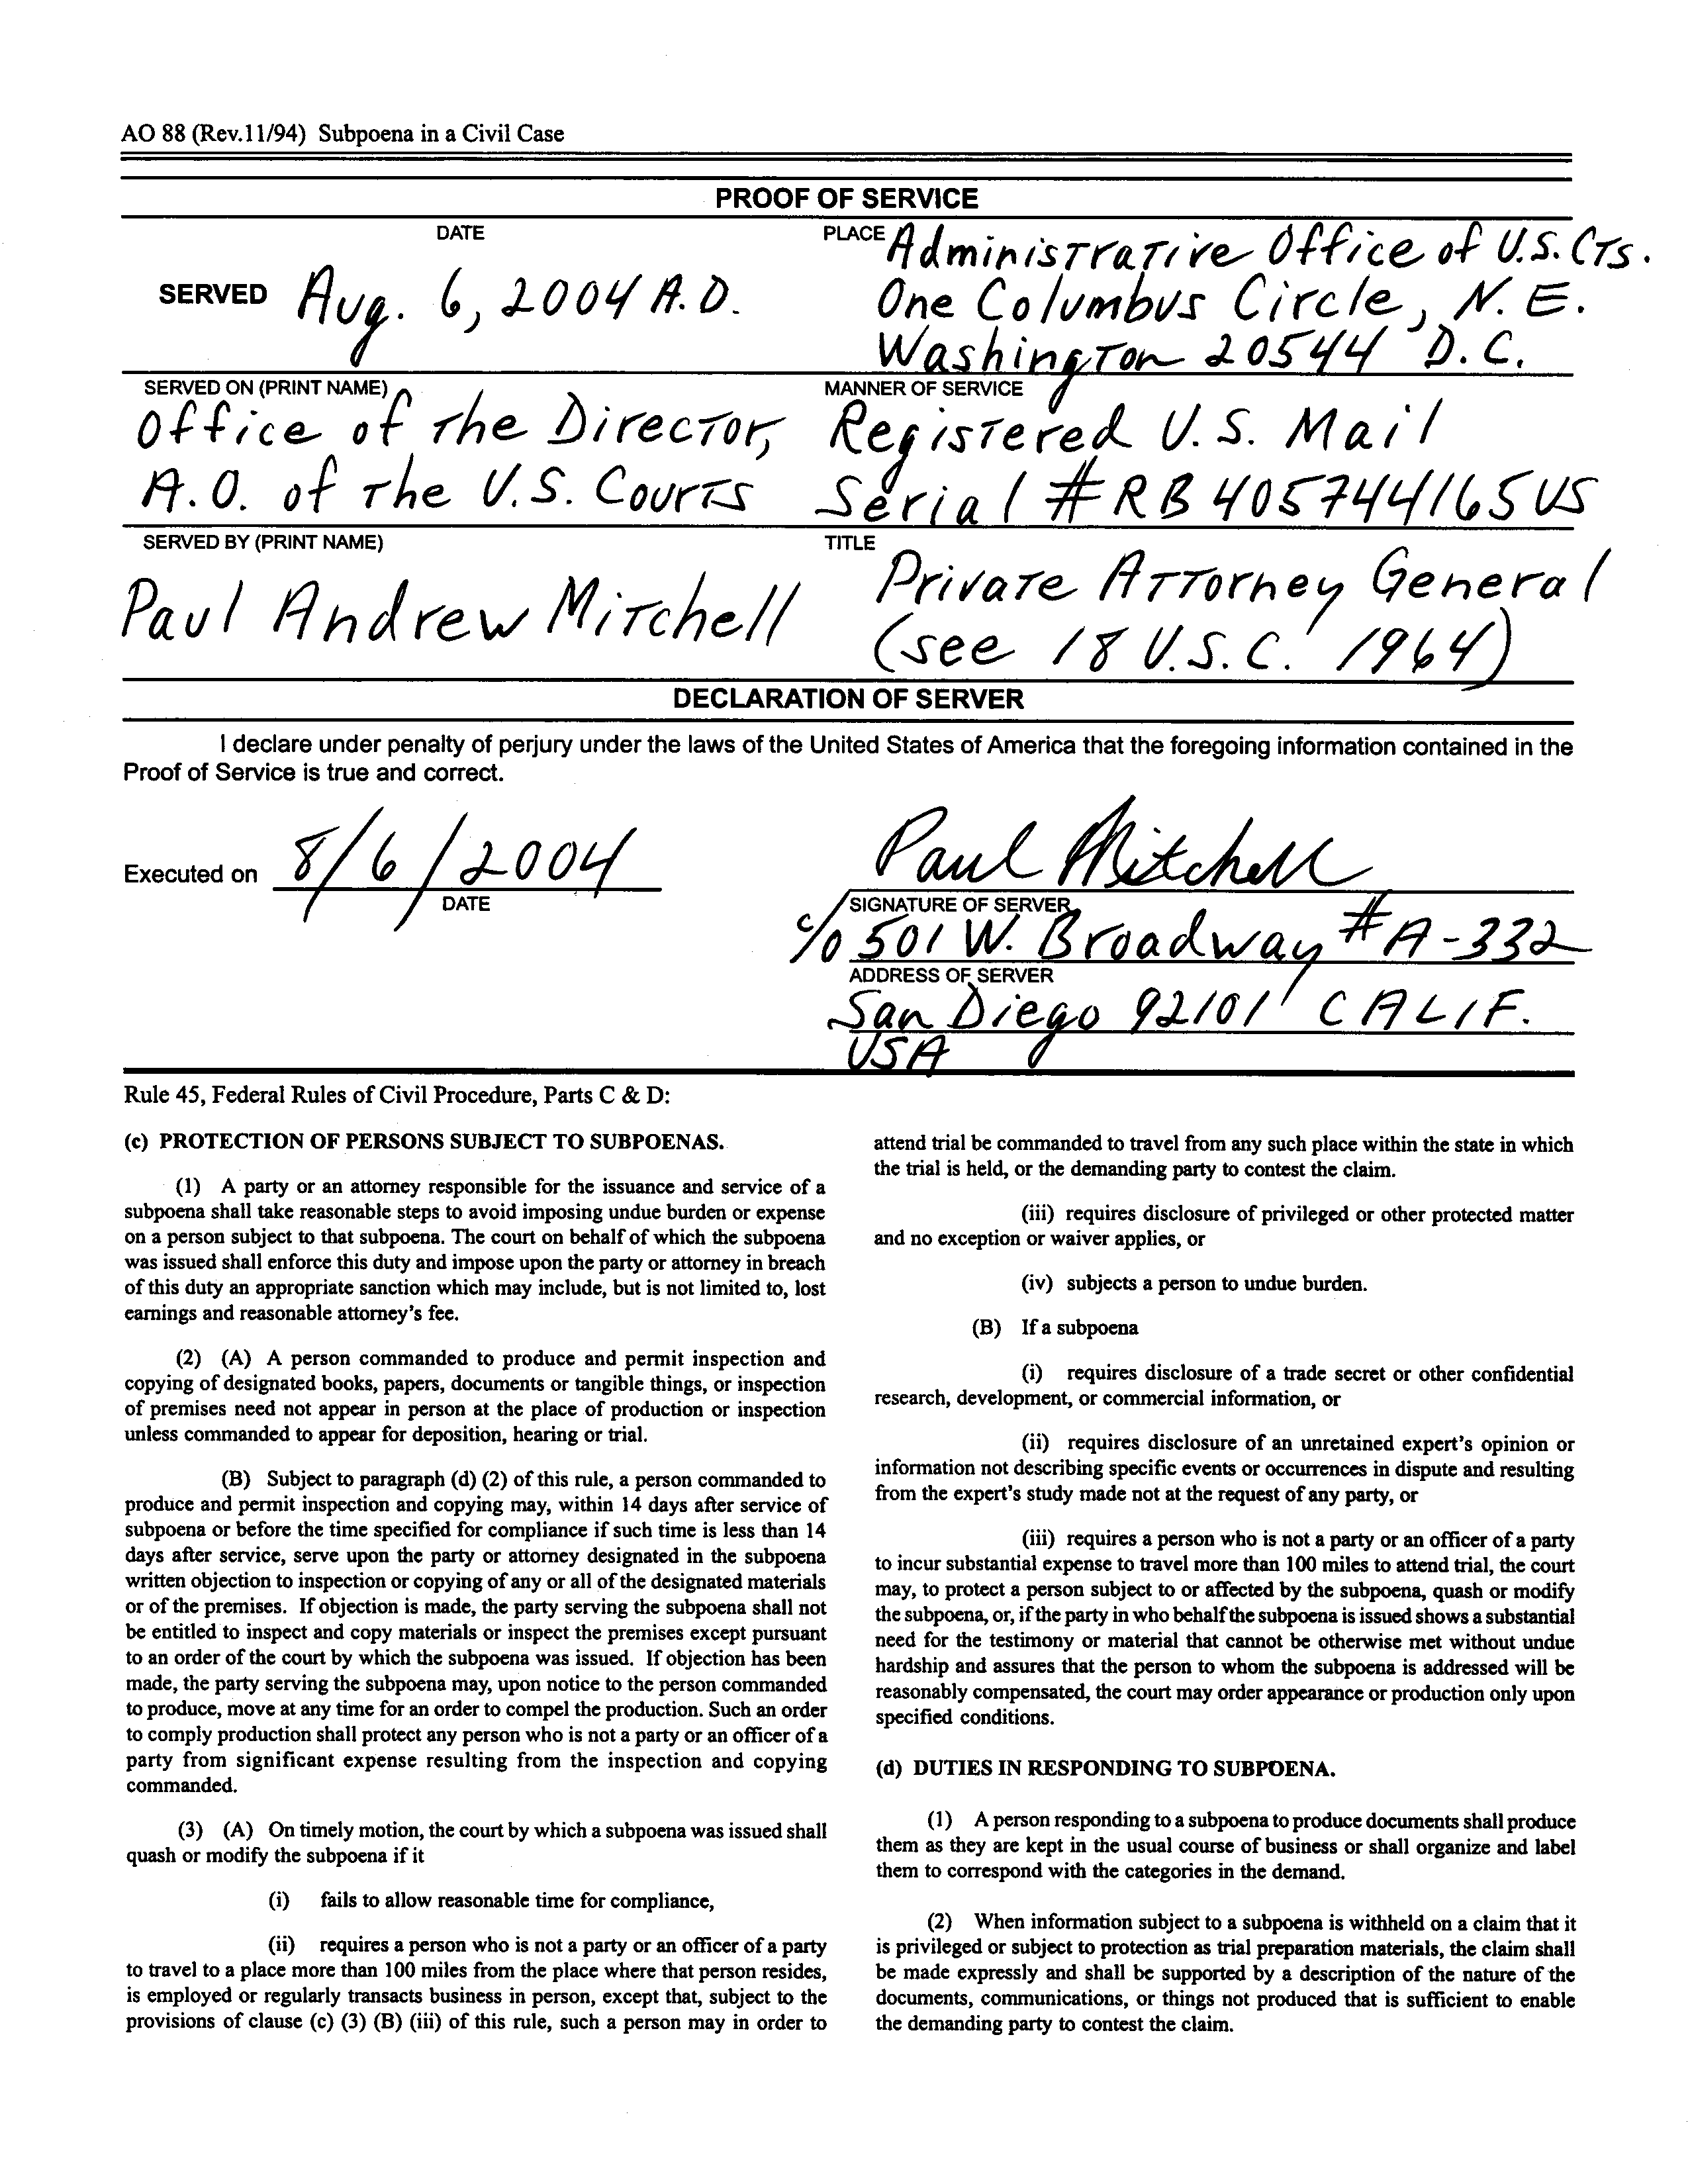 AO 88 (Rev.11/94) Subpoena in a Civil Case
PROOF OF SERVICE
DATE
PLACE Administrative Office of U.S. CTS.
SERVED Aug. 6, 2004 A.D.
One Columbus Circle, N.E.
Washington 20544 D.C.
SERVED ON (PRINT NAME)
MANNER OF SERVICE
Office of the Director,
Registered U.S. Mail
A.O. of the U.S. Courts
Serial #RB405744165US
SERVED BY (PRINT NAME)
TITLE
Private Attorney General
Paul Andrew Mitchell
(see 18 U.S.C. 1964)
DECLARATION OF SERVER
I declare under penalty of perjury under the laws of the United States of America that the foregoing information contained in the
Proof of Service is true and correct.
Executed on 8/6/2004
DATE
Paul Mitchell
SIGNATURE OF SERVER
c/o 501 W. Broadway #A-332
ADDRESS OF SERVER
San Diego 92101 CALIF.
USA
Rule 45, Federal Rules of Civil Procedure, Parts C & D:
(c) PROTECTION OF PERSONS SUBJECT TO SUBPOENAS.
(1) A party or an attorney responsible for the issuance and service of a
subpoena shall take reasonable steps to avoid imposing undue burden or expense
on a person subject to that subpoena. The court on behalf of which the subpoena
was issued shall enforce this duty and impose upon the party or attorney in breach
of this duty an appropriate sanction which may include, but is not limited to, lost
earnings and reasonable attorney's fee.
(2) (A) A person commanded to produce and permit inspection and
copying of designated books, papers, documents or tangible things, or inspection
of premises need not appear in person at the place of production or inspection
unless commanded to appear for deposition, hearing or trial.
(B) Subject to paragraph (d) (2) of this rule, a person commanded to
produce and permit inspection and copying may, within 14 days after service of
subpoena or before the time specified for compliance if such time is less than 14
days after service, serve upon the party or attorney designated in the subpoena
written objection to inspection or copying of any or all of the designated materials
or of the premises. If objection is made, the party serving the subpoena shall not
be entitled to inspect and copy materials or inspect the premises except pursuant
to an order of the court by which the subpoena was issued. If objection has been
made, the party serving the subpoena may, upon notice to the person commanded
to produce, move at any time for an order to compel the production. Such an order
to comply production shall protect any person who is not a party or an officer of a
party from significant expense resulting from the inspection and copying
commanded.
(3) (A) On timely motion, the court by which a subpoena was issued shall
quash or modify the subpoena if it
(i) fails to allow reasonable time for compliance,
(ii) requires a person who is not a party or an officer of a party
to travel to a place more than 100 miles from the place where that person resides,
is employed or regularly transacts business in person, except that, subject to the
provisions of clause (c) (3) (B) (iii) of this rule, such a person may in order to
attend trial be commanded to travel from any such place within the state in which
the trial is held, or the demanding party to contest the claim.
(iii) requires disclosure of privileged or other protected matter
and no exception or waiver applies, or
(iv) subjects a person to undue burden.
(B) If a subpoena
(i) requires disclosure of a trade secret or other confidential
research, development, or commercial information, or
(ii) requires disclosure of an unretained expert's opinion or
information not describing specific events or occurrences in dispute and resulting
from the expert's study made not at the request of any party, or
(iii) requires a person who is not a party or an officer of a party
to incur substantial expense to travel more than 100 miles to attend trial, the court
may, to protect a person subject to or affected by the subpoena, quash or modify
the subpoena, or, if the party in who behalf the subpoena is issued shows a substantial
need for the testimony or material that cannot be otherwise met without undue
hardship and assures that the person to whom the subpoena is addressed will be
reasonably compensated, the court may order appearance or production only upon
specified conditions.
(d) DUTIES IN RESPONDING TO SUBPOENA.
(1) A person responding to a subpoena to produce documents shall produce
them as they are kept in the usual course of business or shall organize and label
them to correspond with the categories in the demand.
(2) When information subject to a subpoena is withheld on a claim that it
is privileged or subject to protection as trial preparation materials, the claim shall
be made expressly and shall be supported by a description of the nature of the
documents, communications, or things not produced that is sufficient to enable
the demanding party to contest the claim.